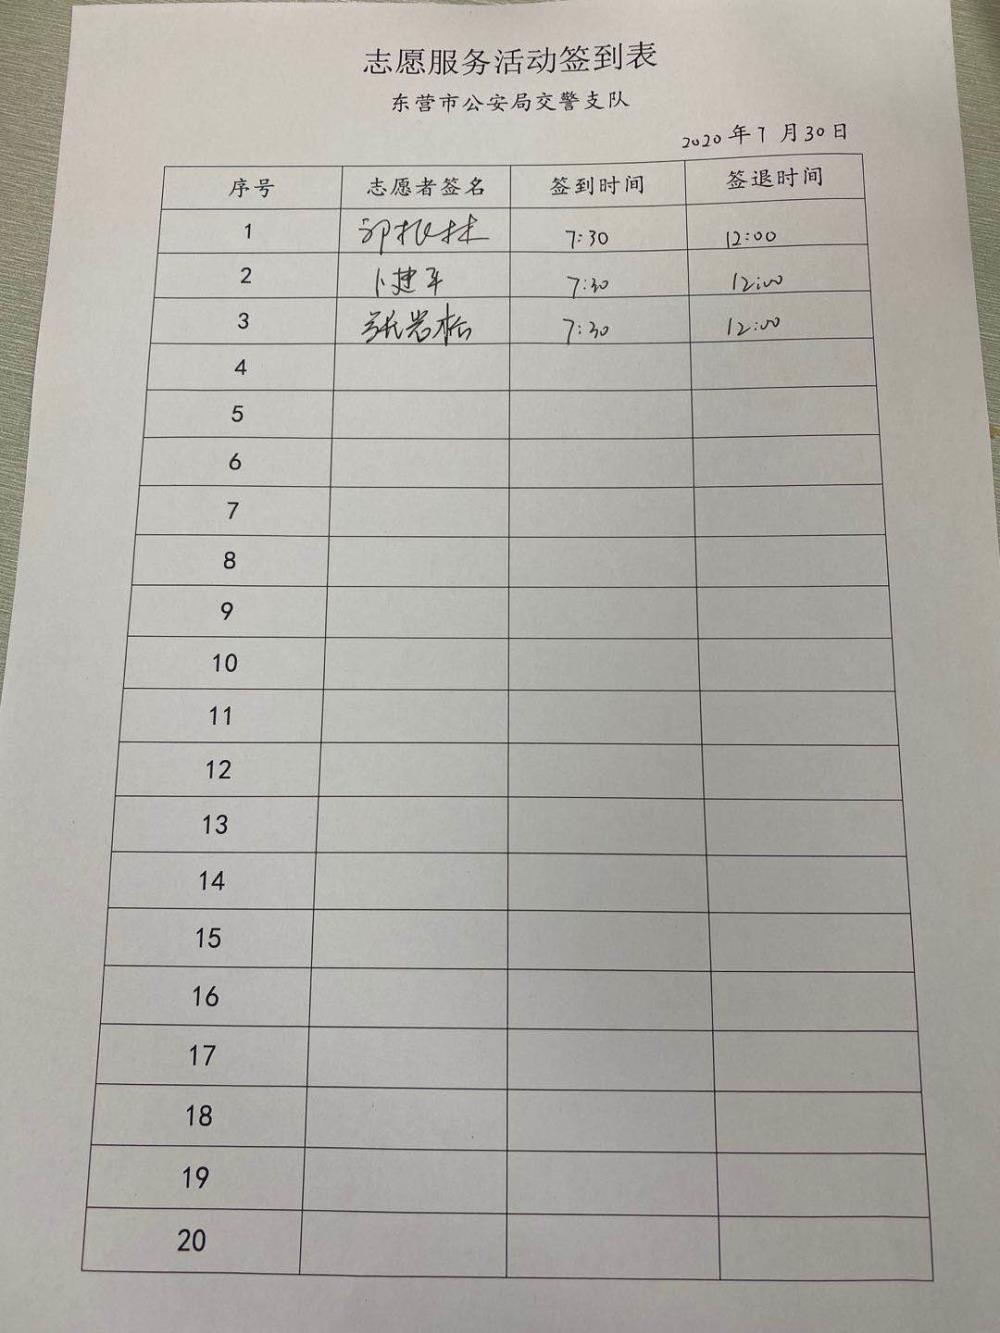 志愿服务活动签到表
东营市公安局交警支队
2020年7月30日
序号 志愿者签名 签到时间 签退时间
1 7:30 12:00
2 卜建平 7:30 12:00
3 张岩松 7:30 12:00
4
5
6
7
8
9
10
11
12
13
14
15
16
17
18
19
20